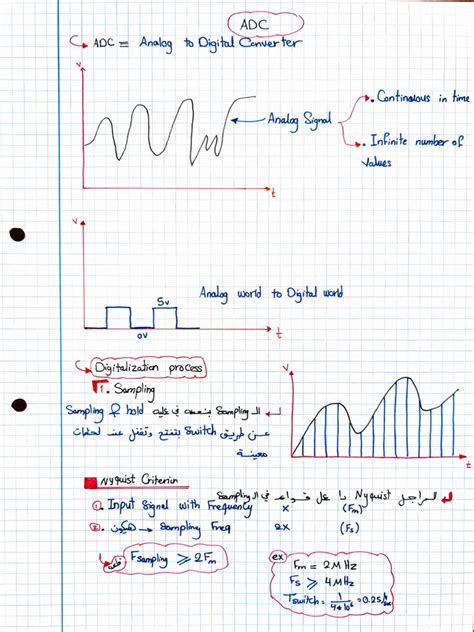 ADC
ADC ≡ Analog to Digital Converter
v
Analog Signal
• Continuous in time
• Infinite number of
values
t
v
5v
0v
Analog world to Digital world
t
Digitalization process
1. Sampling
الـ Sampling بنعمله في عملية Sampling & hold
عن طريق Switch بتفتح وتقفل عند لحظات
معينة
v
t
Nyquist Criterion
الراجل Nyquist دا عل قواعد في الـ Sampling
1. Input Signal with Frequency x (Fm)
2. هيكون → Sampling Freq 2x (Fs)
Fsampling ≥ 2Fm
ex
Fm = 2MHz
Fs ≥ 4MHz
Tswitch = 1/4*10⁶ = 0.25